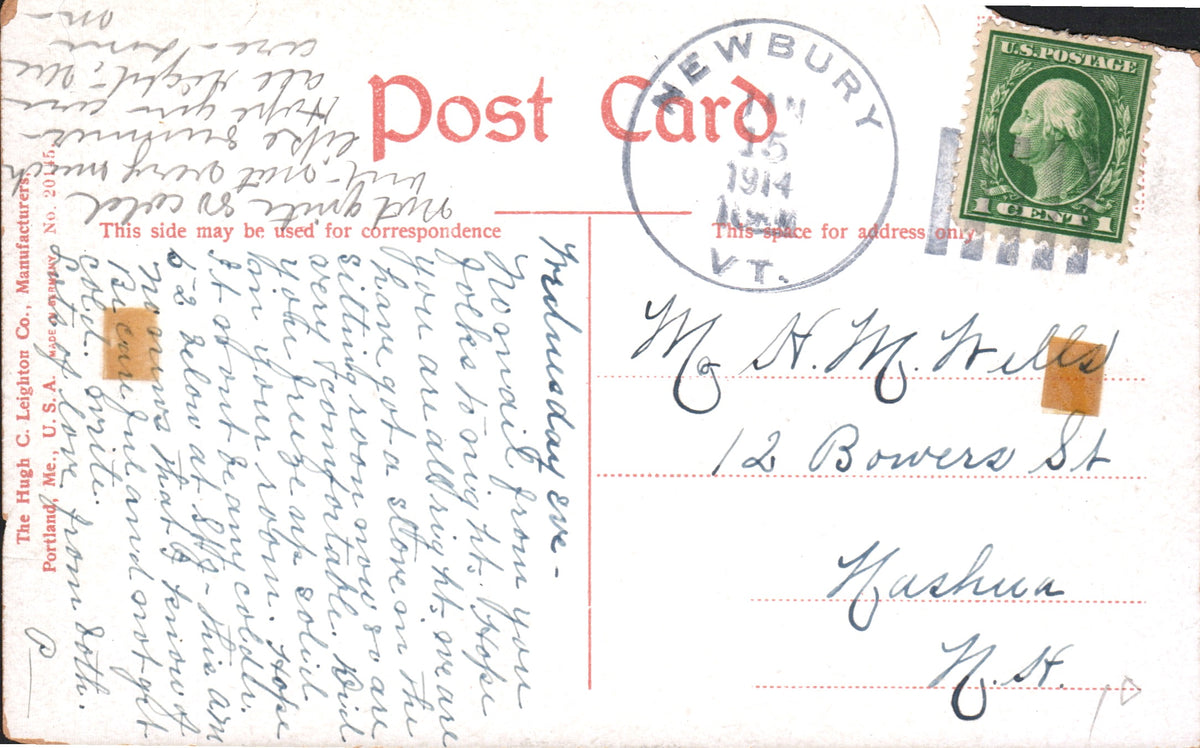 Post Card
This side may be used for correspondence
This space for address only
NEWBURY
JAN
15
1914
VT.
U.S. POSTAGE
1 CENT 1
Mr H. M. Wells
12 Bowers St
Nashua
N. H.
Wednesday Eve -
No mail from you
folks to night. Hope
you are all right. we are
have got a stove in the
sitting room now so are
very comfortable. Did
you freeze up solid
in your room. Hope
it won't be any colder.
52 below at St J - this am
No news that I know of
Be careful and not get
cold. write.
Lots of love from both.
P
not quite so cold
but not very much
like summer
Hope you are
all right. We
are
on
The Hugh C. Leighton Co., Manufacturers,
Portland, Me., U. S. A. MADE IN GERMANY No. 20145.